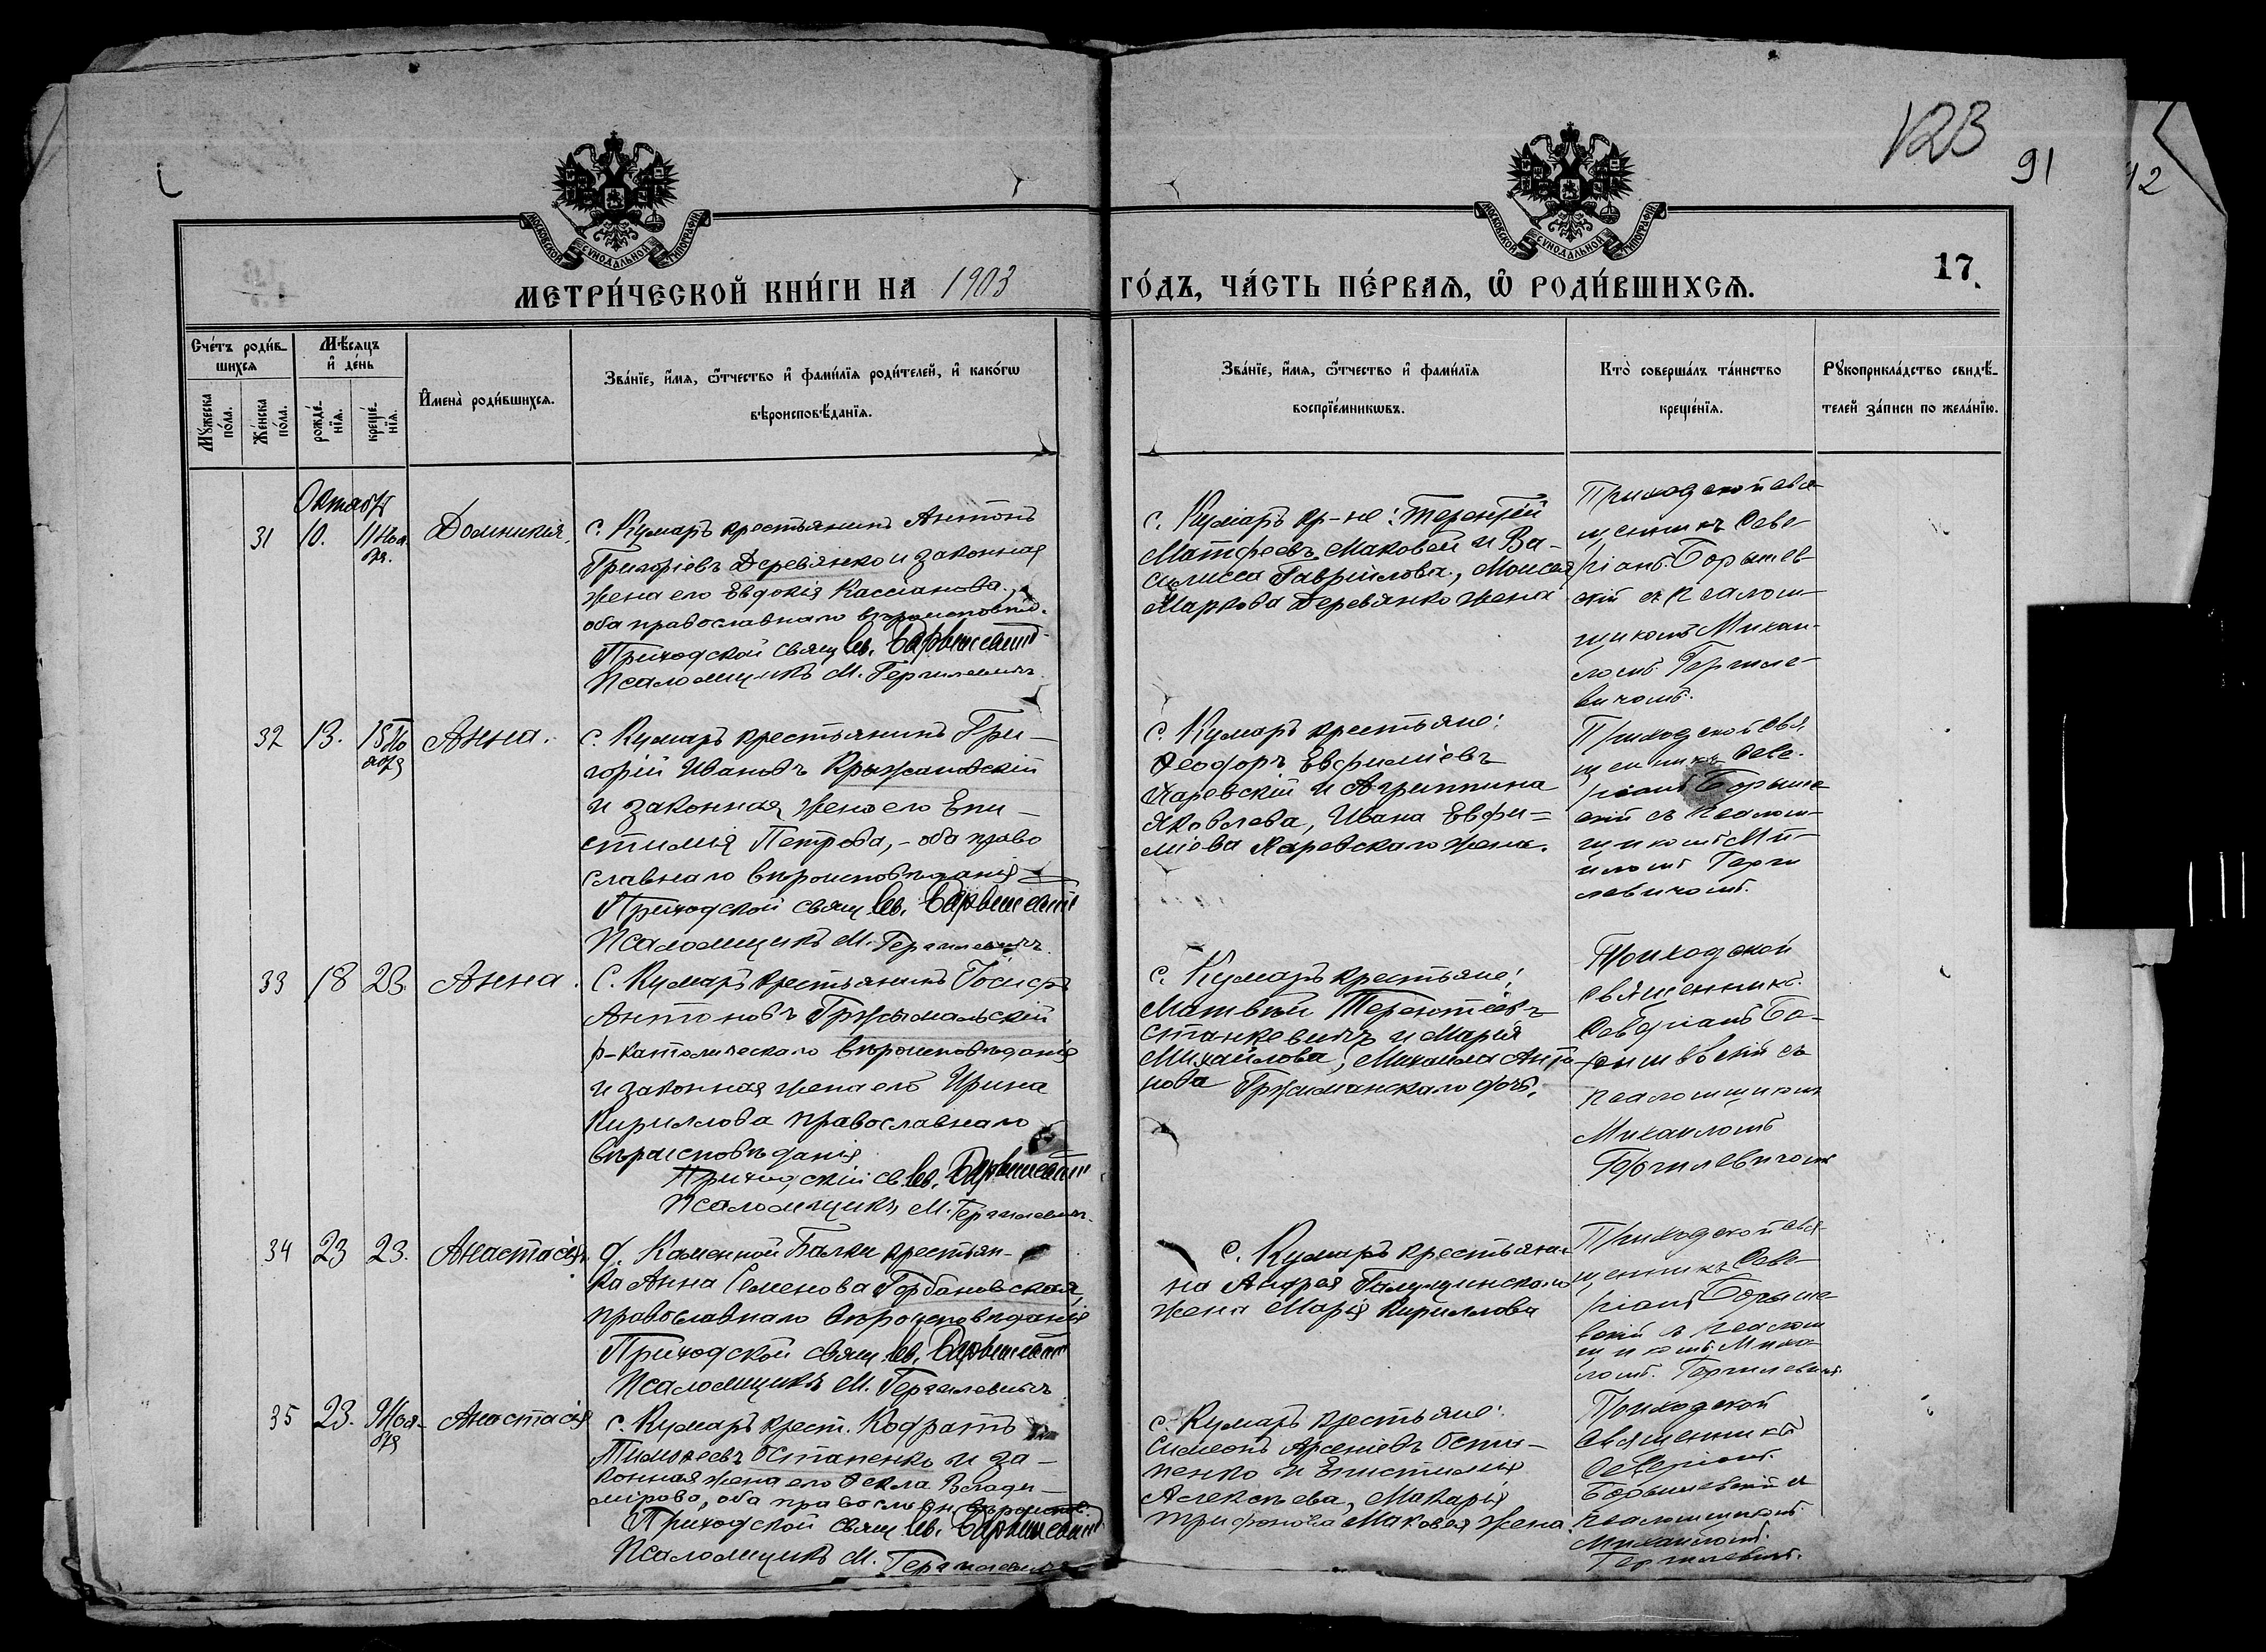 123
91
12
МОСКОВСКОЙ СУНОДАЛЬНОЙ ТИПОГРАФІИ
МОСКОВСКОЙ СУНОДАЛЬНОЙ ТИПОГРАФІИ
17.
МЕТРИ́ЧЕСКОЙ КНИ́ГИ НА 1903 ГО́ДЪ, ЧА́СТЬ ПЕ́РВАѦ, Ѡ҆ РОДИ́ВШИХСѦ.
Сче́тъ роди́в-
шихсѧ
Мѣ́сѧцъ
и҆ де́нь
Мꙋ́жеска
по́ла.
Же́нска
по́ла.
рожде́-
нїѧ.
креще́-
нїѧ.
И҆мена̀ роди́вшихсѧ.
Зва́нїе, и҆́мѧ, ѻ҆́тчество и҆ фами́лїѧ роди́телей, и҆ како́гѡ
вѣроисповѣ́данїѧ.
Зва́нїе, и҆́мѧ, ѻ҆́тчество и҆ фами́лїѧ
воспрїе́мникѡвъ.
Кто̀ соверша́лъ та́инство
креще́нїѧ.
Рꙋкоприкла́дство свидѣ́-
телей за́писи по жела́нїю.
Октябр
31 10. 11 Ноя
бря.
Домникія.
с. Кумаръ крестьянинъ Антонъ
Григоріевъ Деревянко и законная
жена его Евдокія Кассіанова,
оба православнаго вѣроисповѣд.
Приходской свящ
Псаломщикъ М. Гергилевичъ
с. Кумаръ кр-не: Терентій
Матфеевъ Маковей и Ва-
силисса Гавріилова, Моисея
Маркова Деревянко жена
Приходской свя-
щенникъ Севе-
ріанъ
скій съ псалом-
щикомъ Михаи-
ломъ Гергиле-
вичомъ.
32 13. 15 Но
ября
Анна.
с. Кумаръ крестьянинъ Гри-
горій Ивановъ Крыжановскій
и законная жена его Епи-
стимія Петрова, - оба право
славнаго вѣроисповѣданія
Приходской свящ
Псаломщикъ М. Гергилевичъ
с. Кумаръ крестьяне:
Ѳеодоръ Евфиміевъ
Каревскій и Агриппина
Яковлева, Ивана Евфи=
міева Каревскаго жена.
Приходской свя
щенникъ Севе-
ріанъ
скій съ псалом-
щикомъ Ми-
иломъ Герги
левичомъ.
33 18 23
Анна.
С. Кумаръ крестьянинъ Іосифъ
Антоновъ Гржымальскій
р-католическаго вѣроисповѣданія
и законная жена его Ирина
Кириллова православнаго
вѣроисповѣданія
Приходскій св.
Псаломщикъ М. Гергилевичъ
с. Кумаръ крестьяне:
Матвѣй Терентіевъ
Станкевичъ и Марія
Михайлова, Михаила Анто
нова доч.
Приходской
священникъ
Северіанъ
съ
псаломщикомъ
Михаиломъ
Гергилевичомъ
34 23 23.
Анастасія.
д. Каменной Балки крестьян-
ка Анна Семенова Горбановская,
православнаго вѣроисповѣданія
Приходской свящ
Псаломщикъ М. Гергилевичъ
с. Кумаръ крестьяни-
на Андрея
жена Марія Кириллова
Приходской свя-
щенникъ Севе-
ріанъ
вскій съ псалом
щикомъ Миха-
ломъ. Гергилевич.
35 23. 9 Ноя-
бря
Анастасія
с. Кумаръ крест. Кодратъ
Тимоѳеевъ Остапенко и за-
конная жена его Ѳекла Влади-
мірова, оба православн. вѣроиспов.
Приходской свящ
Псаломщикъ М. Гергилевичъ
с. Кумаръ крестьяне:
Симеонъ Арсеніевъ Оста-
пенко и Епистимія
Алексѣева, Макарія
Трифонова Маковея жена.
Приходской
священникъ
Северіанъ
съ
псаломщикомъ
Михаиломъ
Гергилевич.